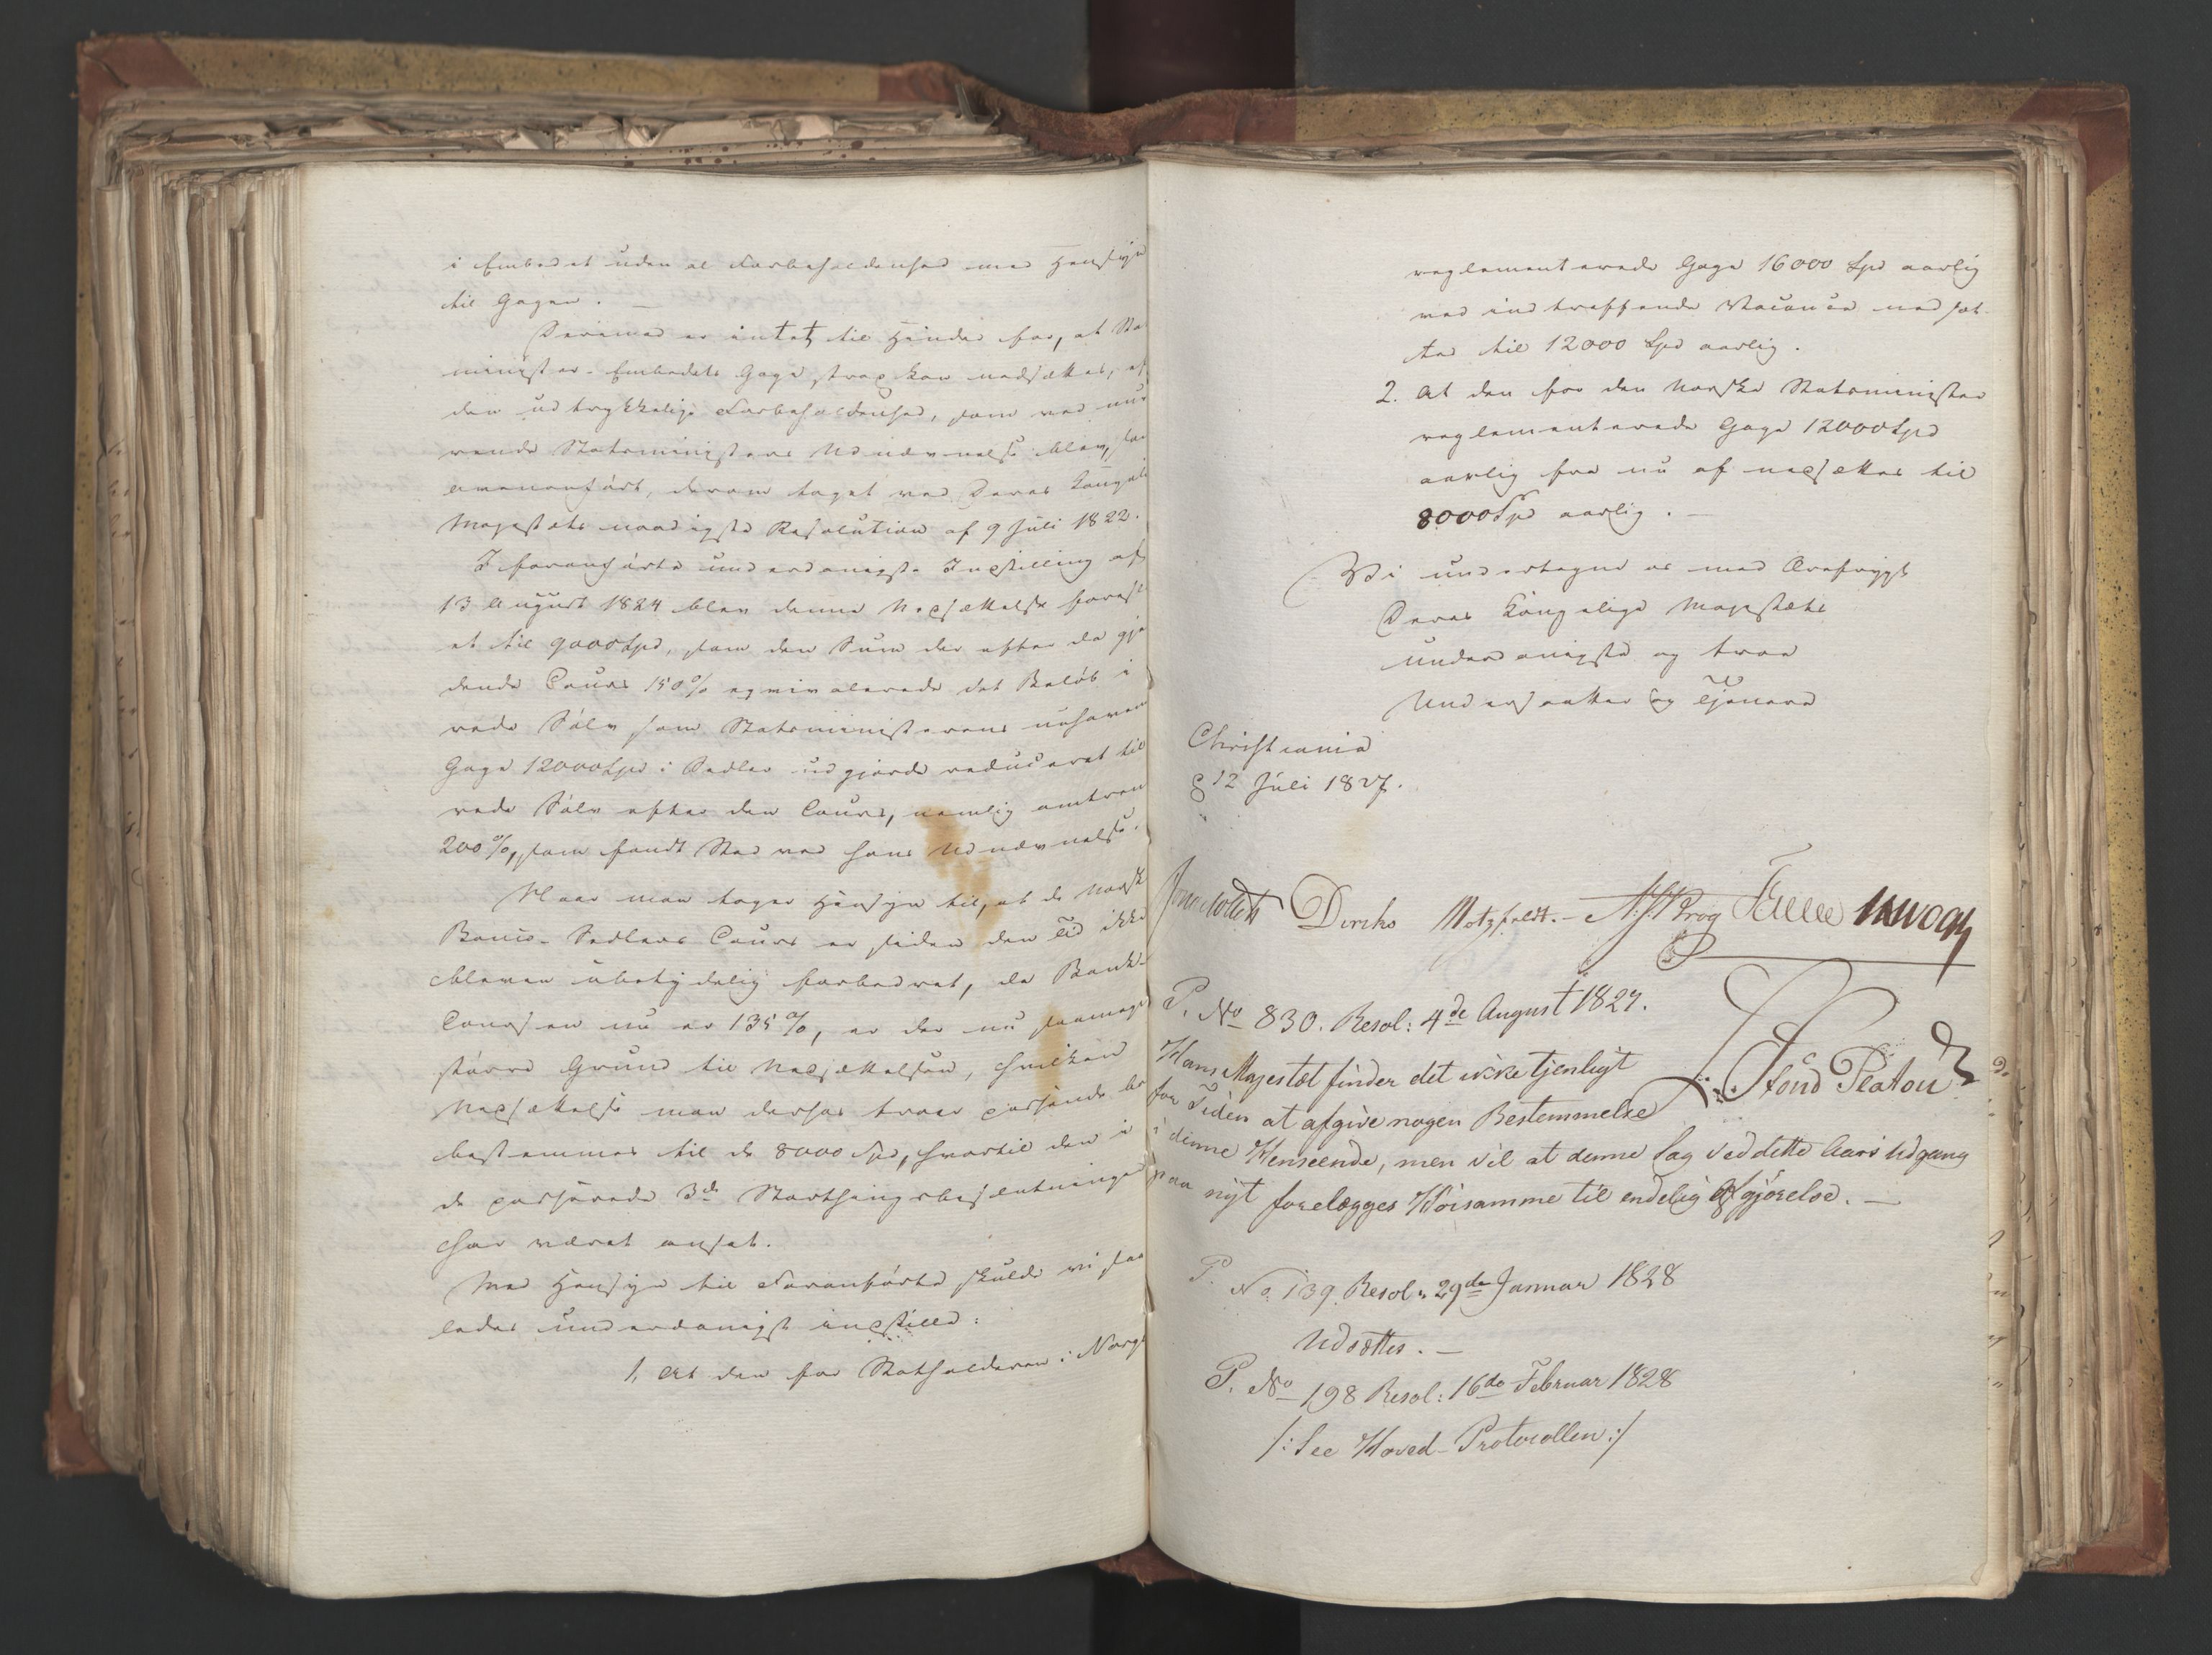 i Embedet uden al Forbeholdenhed med Hensyn
til Gagen. —
Derimod er intet til Hinder for, at Sta
minister-Embedets Gage strax kan nedsættes, ef
den udtrykkelige Forbeholdenhed, som ved nu
rende Statsministers Udnævnelse blev, so
ovenanført, derom taget ved Deres Kongel
Majestæts naadigste Resolution af 9 Juli 1822.
I foranførte underdanigste Indstilling af
13 August 1824 blev denne Nedsættelse forest
et til 9000 Spd, som den Sum der efter da gje
dende Cours 150% eqvivalerede det Beløb i
rede Sølv som Statsministerens nuhaven
Gage 12000 Spd i Sedler udgjorde reduceret til
rede Sølv efter den Cours, nemlig omtren
200%, som fandt Sted ved hans Udnævnelse.
Naar man tager Hensyn til, at de norsk
Banco-Sedlers Cours er siden den Tid ikke
bleven ubetydelig forbedret, da Bank-
Coursen nu er 135%, er der nu saameget
større Grund til Nedsættelsen, hvilken
Nedsættelse man derfor troer passende be
bestemmes til de 8000 Spd, hvortil den i
de passerede 3de Storthingsbeslutninge
har været ansat.
Med Hensyn til Foranførte skulde vi saa
ledes underdanigst indstille:
1, At den for Statholderen i Norge
reglementerede Gage 16000 Spd aarlig
ved indtreffende Vacance nedsæt-
tes til 12000 Spd aarlig.
2. At den for den norske Statsminister
reglementerede Gage 12000 Spd
aarlig fra nu af nedsættes til
8000 Spd aarlig. —
Vi undertegne os med Ærefrygt
Deres Kongelige Majestæts
underdanigste og troe
Undersaatter og Tjenere
Christiania
d 12 Juli 1827.
Jonas Collett Diriks Motzfeldt. — Krog
P. No 830. Resol: 4de August 1827.
Hans Majestæt finder det ikke tjenligt
for Tiden at afgive nogen Bestemmelse
i denne Henseende, men vil at denne Sag ved dette Aars Udgang
paa nyt forelægges Høisamme til endelig Afgjørelse. —
Stoud Platou
P. No. 139. Resol. 29de Januar 1828
Udsættes. —
P. No 198 Resol: 16de Februar 1828
/: See Hoved-Protocollen :/